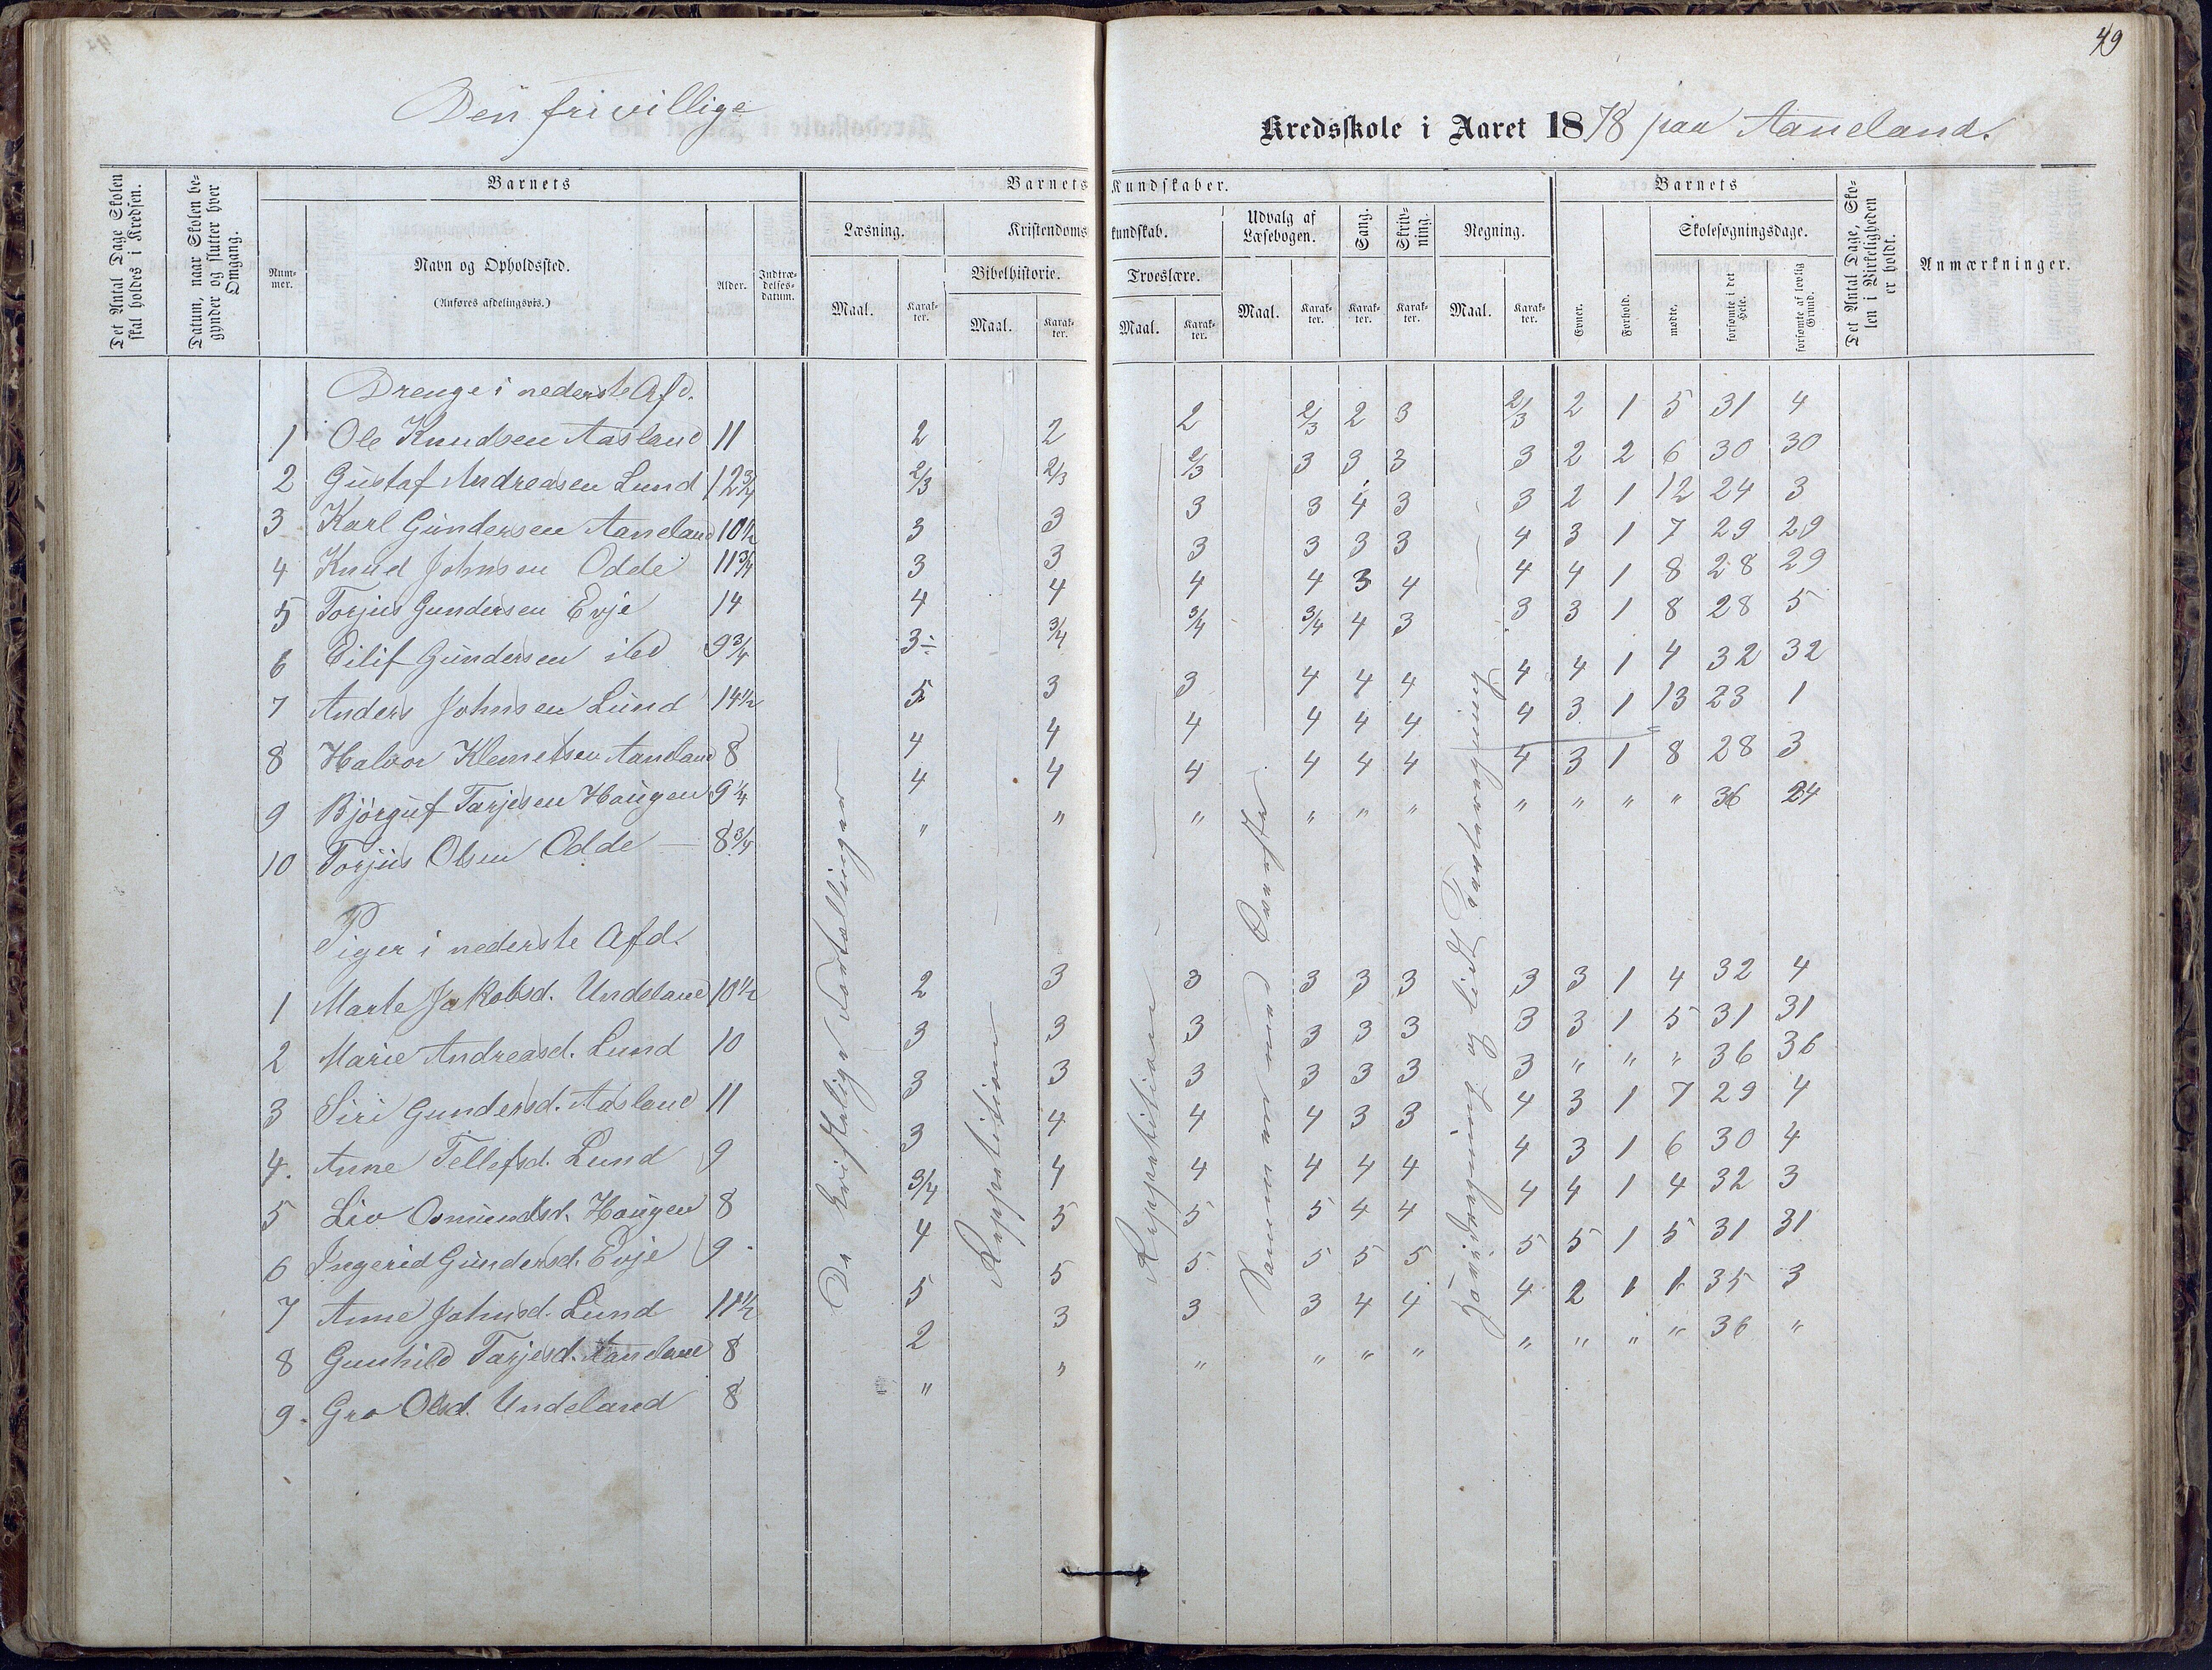 49
Den frivillige Kredsskole i Aaret 1878 paa Aaneland.
Det Antal Dage Skolen skal holdes i Kredsen.
Datum, naar Skolen begynder og slutter hver Omgang.
Barnets
Nummer.
Navn og Opholdssted.
(Anføres afdelingsvis.)
Alder.
Indtrædelsesdatum.
Barnets Kundskaber.
Læsning.
Maal.
Karakter.
Kristendomskundskab.
Bibelhistorie.
Maal.
Karakter.
Troeslære.
Maal.
Karakter.
Udvalg af Læsebogen.
Maal.
Karakter.
Sang.
Karakter.
Skrivning.
Karakter.
Regning.
Maal.
Karakter.
Barnets
Evner.
Forhold.
Skolesøgningsdage.
mødte.
forsømte i det Hele.
forsømte af lovlig Grund.
Det Antal Dage, Skolen i Virkeligheden er holdt.
Anmærkninger.
Drenge i nederste Afd.
1 Ole Knudsen Aasland 11 2 2 2 2/3 2 3 2/3 2 1 5 31 4
2 Gustaf Andreasen Lund 12 3/4 2/3 2/3 2/3 3 3 3 3 2 2 6 30 30
3 Karl Gundersen Aaneland 10 1/2 3 3 3 3 4 3 3 2 1 12 24 3
4 Knud Johnsen Odde 11 3/4 3 3 3 3 3 3 4 3 1 7 29 29
5 Torjus Gundersen Evje 14 4 4 4 4 3 4 4 4 1 8 28 29
6 Eilif Gundersen ibd 9 3/4 3÷ 3/4 3/4 3/4 4 3 3 3 1 8 28 5
7 Anders Johnsen Lund 14 1/2 5 3 3 4 4 4 4 4 1 4 32 32
8 Halvor Klemetsen Aaneland 8 4 4 4 4 4 4 4 3 1 13 23 1
9 Bjørguf Tarjesen Haugen 9 1/4 4 4 4 4 4 4 4 3 1 8 28 3
10 Torjus Olsen Odde — 8 3/4 " " " " " " " " " " 36 24
Piger i nederste Afd.
1 Marte Jakobsd. Undeland 10 1/2 2 3 3 3 3 3 3 3 1 4 32 4
2 Marie Andreasd. Lund 10 3 3 3 3 3 3 3 3 1 5 31 31
3 Siri Gundersd. Aasland 11 3 3 3 3 3 3 3 " " " 36 36
4. Anne Tellefsd. Lund 9 3 4 4 4 3 3 4 3 1 7 29 4
5 Liv Osmundsd. Haugen 8 3/4 4 4 4 4 4 4 3 1 6 30 4
6 Ingerid Gundersd. Evje 9 4 5 5 5 4 4 4 4 1 4 32 3
7 Anne Johnsd. Lund 11 1/2 5 5 5 5 5 5 5 5 1 5 31 31
8 Gunhild Tarjesd. Aaneland 8 2 3 3 3 4 4 4 2 1 1 35 3
9. Gro Olsd. Undeland 8 " " " " " " " " " " 36 "
De kristelige Fortællinger
Reppetition
Reppetition
Samme som Ovenfor